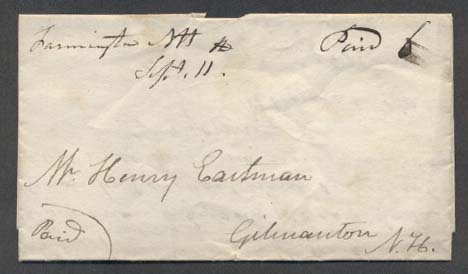 Farmington NH Paid 6
Sept. 11.
Mr. Henry Eastman
Paid
Gilmanton N.H.